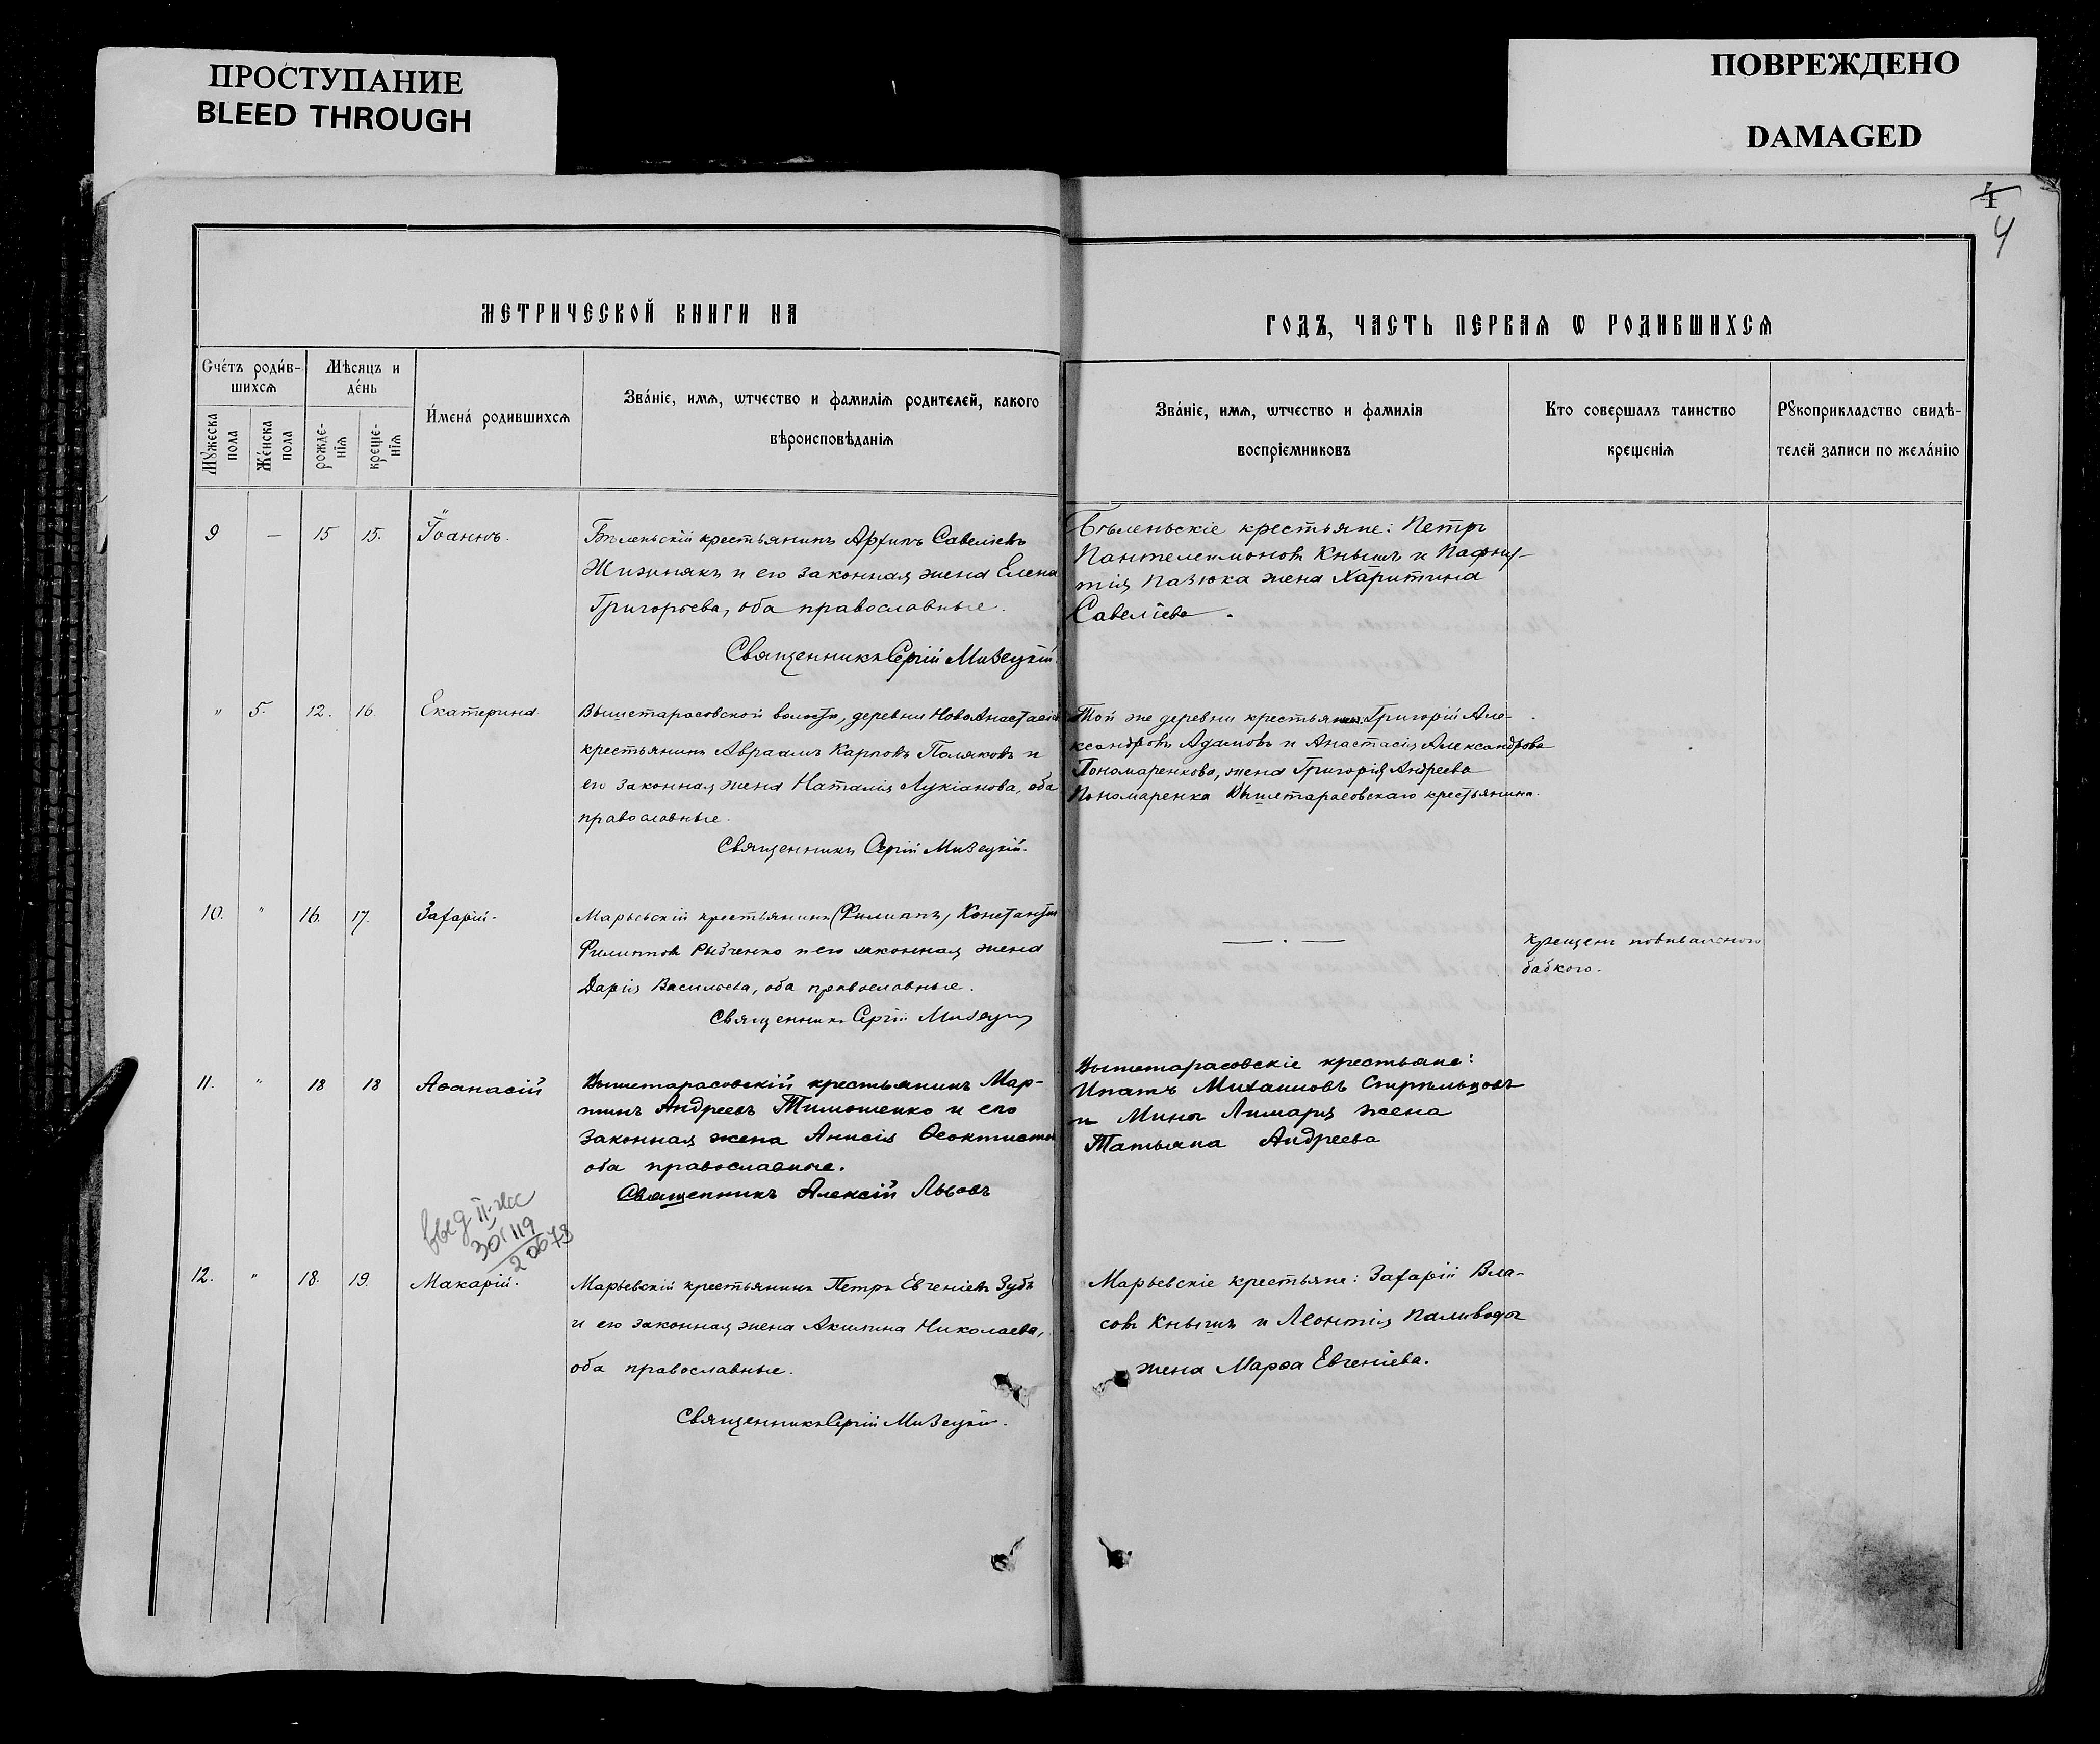 ПРОСТУПАНИЕ
BLEED THROUGH
ПОВРЕЖДЕНО
DAMAGED
4
4
МЕТРИЧЕСКОЙ КНИГИ НА
ГОДЪ, ЧАСТЬ ПЕРВАѦ Ѡ РОДИВШИХСѦ
Счéтъ роди́в-
шихсѧ
Мѣ́сяцъ и
де́нь
Мꙋжеска
пола
Же́нска
пола
рожде-
нїѧ
креще-
нїѧ
И́мена́ родившихсѧ
Зва́нїе, имѧ, ѡтчество и фамилїѧ родителей, какого
вѣроисповѣданїѧ
Зва́нїе, имѧ, ѡтчество и фамилїѧ
воспрїемниковъ
Кто совершалъ таинство
крещенїѧ
Рꙋкоприкладство свидѣ-
телей записи по жела́нїю
9 — 15 15. Іоаннъ.
Бѣленьскій крестьянинъ Архипъ Савеліевъ
Жижнякъ и его законная жена Елена
Григорьева, оба православные.
Священникъ Сергій Мивецкій.
Бѣленьскіе крестьяне: Петръ
Пантелеимоновъ Кнышъ и Пафну-
тія Пазюка жена Харитина
Савеліева.
" 5. 12. 16. Екатерина.
Вышетарасовской волости, деревни НовоАнастасіев
крестьянинъ Авраамъ Карповъ Поляковъ и
его законная жена Наталія Лукіанова, оба
православные.
Священникъ Сергій Мивецкій.
Той же деревни крестьяне: Григорій Але-
ксандровъ Адамовъ и Анастасія Александрова
Пономаренкова, жена Григорія Андреева
Пономаренка Вышетарасовскаго крестьянина.
10. " 16. 17. Захарій.
Марьевскій крестьянинъ (Филиппъ) Константин
Филиппов Рыбченко и его законная жена
Дарія Васильева, оба православные.
Священникъ Сергій Мивецкій
— . —
крещенъ повивальною
бабкою.
11. " 18 18 Аѳанасій
Вышетарасовскій крестьянинъ Мар-
тинъ Андреевъ Тимошенко и его
законная жена Анисія Ѳеоктистов
оба православные.
Священникъ Алексій Львовъ
Вышетарасовскіе крестьяне:
Ипатъ Михаиловъ Стрѣльцовъ
и Мины Лимаря жена
Татьяна Андреева
выд II-ЖС
30/119
20673
12. " 18. 19. Макарій.
Марьевскій крестьянинъ Петръ Евгеніевъ Зубъ
и его законная жена Акилина Николаева,
оба православные.
Священникъ Сергій Мивецкій.
Марьевскіе крестьяне: Захарій Вла-
совъ Кнышъ и Леонтія Паливоды
жена Марѳа Евгеніева.